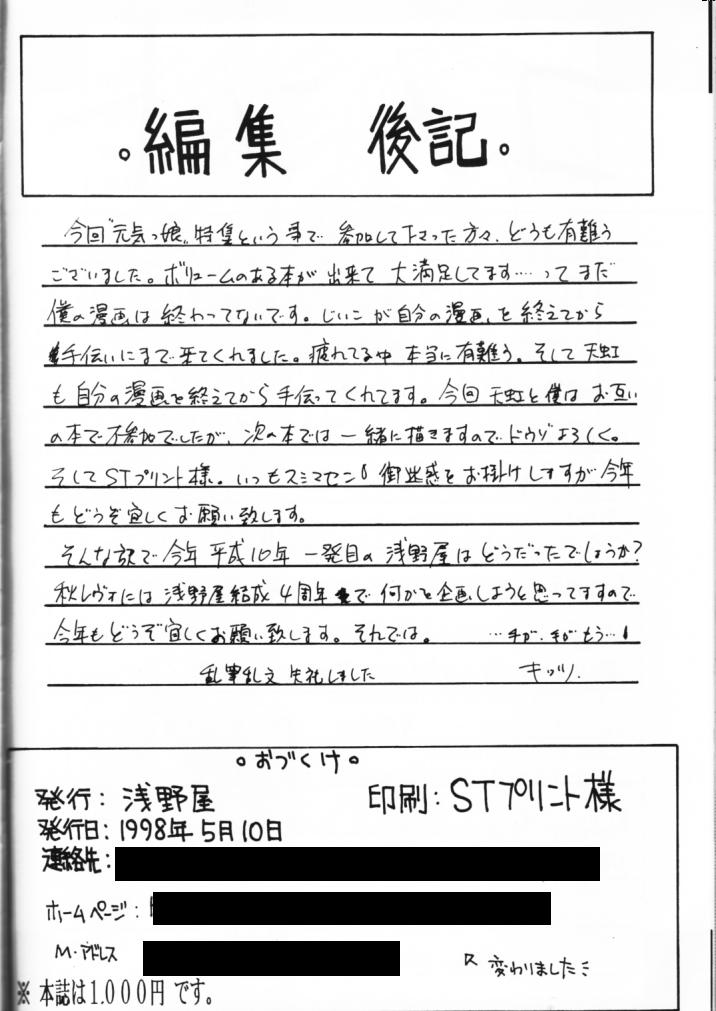 。編集 後記。
今回"元気っ娘"特集という事で 参加して下さった方々、どうも有難う
ございました。ボリュームのある本が 出来て 大満足してます……って まだ
僕の漫画は 終わってないです。じいこが自分の漫画を終えてから
手伝いにまで来てくれました。疲れてる中 本当に有難う。そして 天虹
も 自分の漫画を終えてから 手伝ってくれてます。今回 天虹と僕は お互い
の本で不参加でしたが、次の本では 一緒に描きますのでドウゾよろしく。
そしてSTプリント様。いつもスミマセン! 御迷惑をお掛けしますが今年
もどうぞ宜しくお願い致します。
そんな訳で今年 平成10年 一発目の 浅野屋は どうだったでしょうか?
秋レヴォには 浅野屋結成 4周年 で 何かを企画しようと思ってますので
今年もどうぞ宜しくお願い致します。それでは。 …手が、手がもう…!
乱筆乱文 失礼しました キッツ
。おづくけ。
発行: 浅野屋 印刷: STプリント様
発行日: 1998年 5月10日
連絡先:
ホームページ:
M・アドレス
変わりました
※ 本誌は1,000円です。